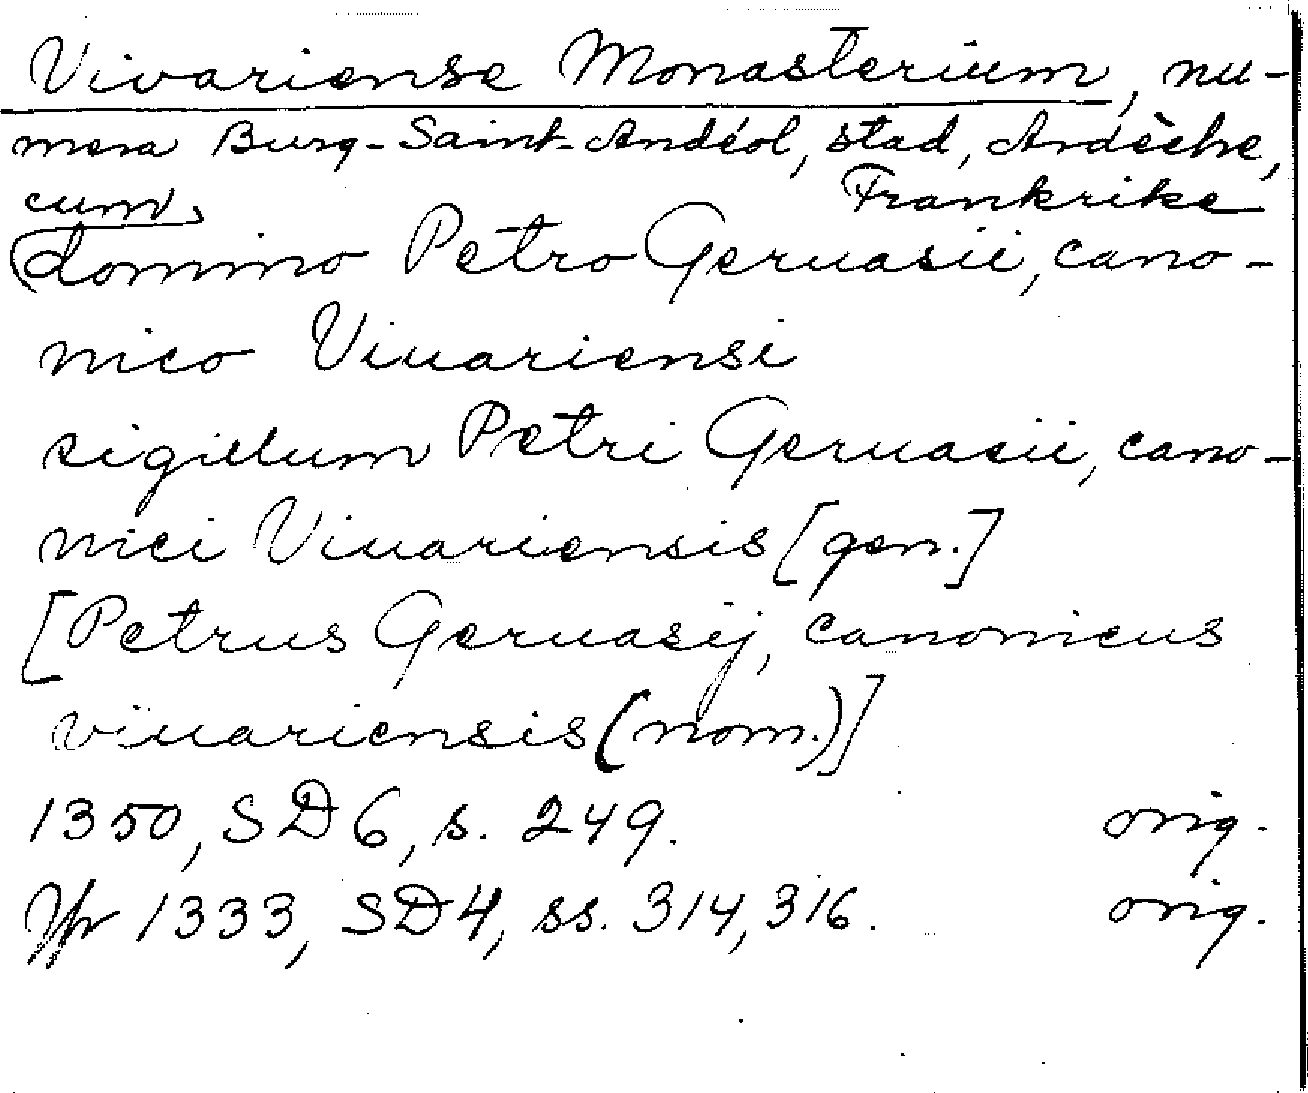 Vivariense Monasterium, nu-
mera Burg-Saint-Andéol, stad, Ardèche,
Frankrike
cum
domino Petro Geruasii, cano-
nico Viuariensi
sigillum Petri Geruasii, cano-
nici Viuariensis [gen.]
[Petrus Geruasij, canonicus
viuariensis (nom.)]
1350, SD6, s. 249. orig.
Jfr 1333, SD4, ss. 314, 316. orig.